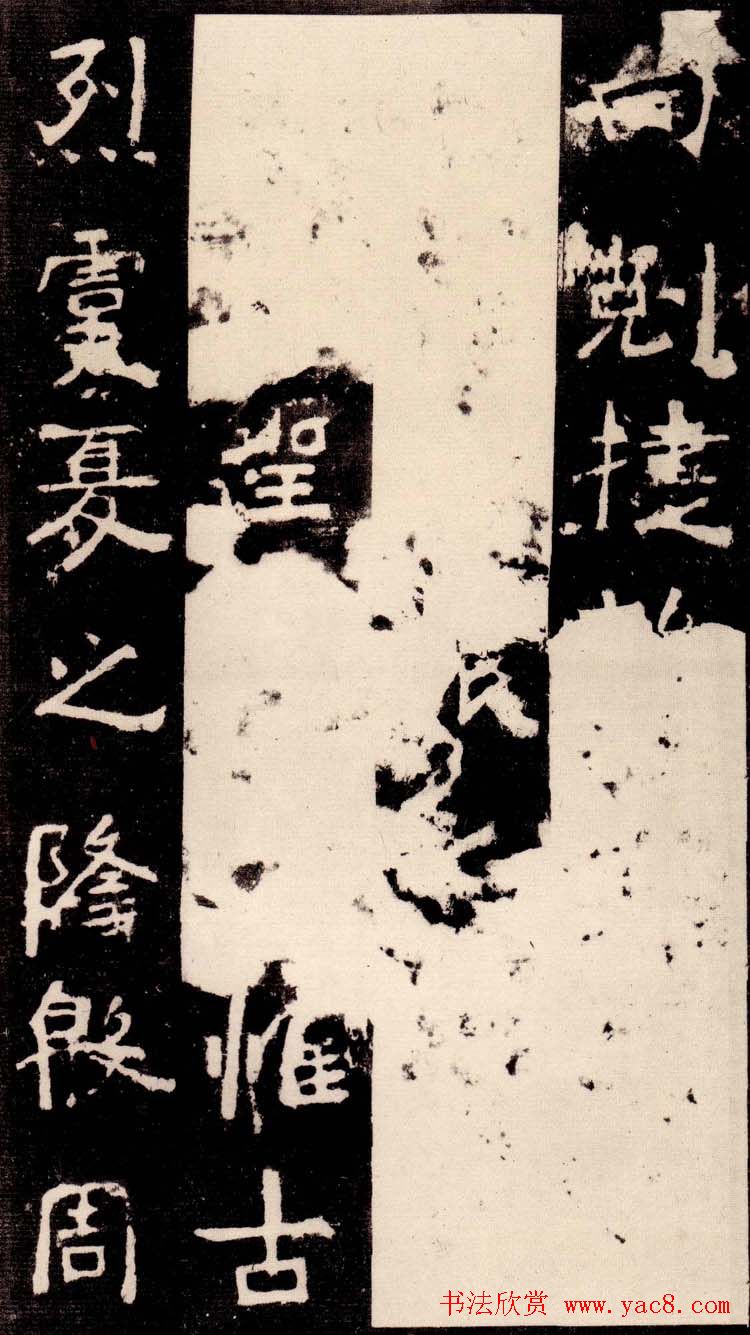 向剋捷
民
聖惟古
烈虞夏之隆殷周
书法欣赏 www.yac8.com